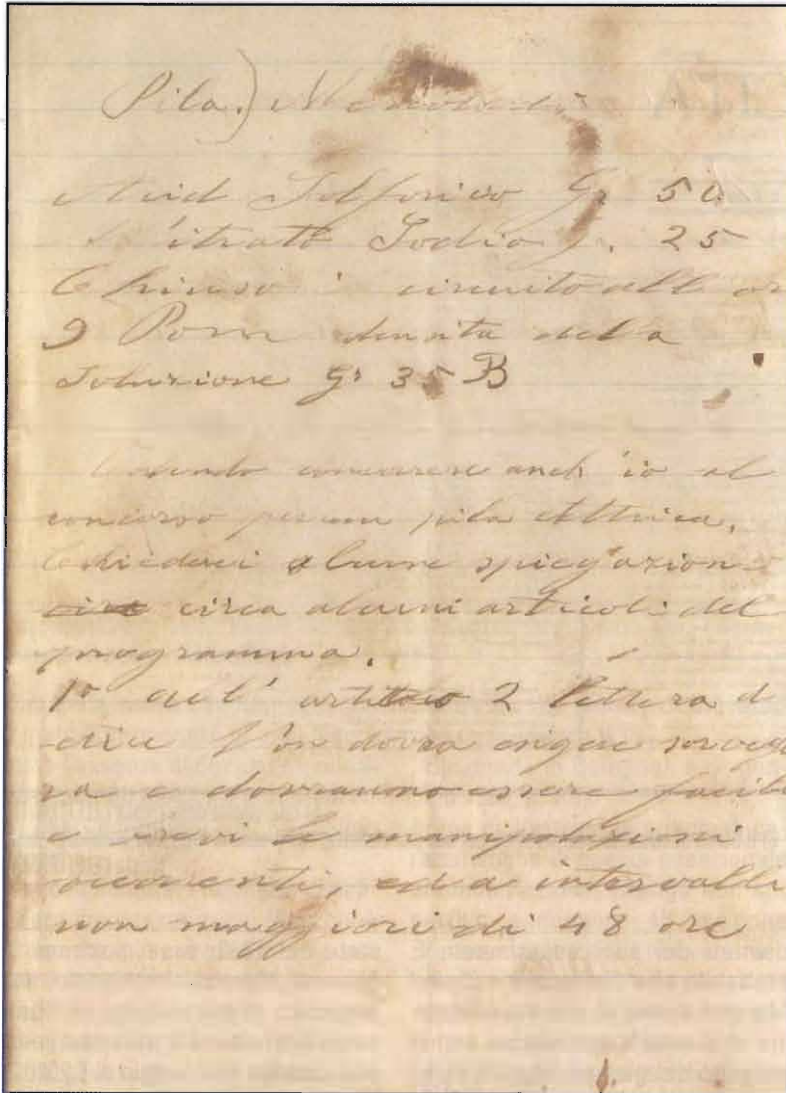 Pila) Mercoledi
Acid Solforico Gr 50
Nitrato Sodio Gr. 25
Chiuso i circuito alle or
9 Pom densita della
Soluzione Gr 35 B
concorrere anch'io al
concorso per una pila elettrica,
alcune spiegazion
circa alcuni articoli del
programma.
1º articolo 2 lettera d
dice Non dovra esigere sorveg
za e dovranno essere facili
e brevi le manipolazioni
occorrenti, ed a intervalli
non maggiori di 48 ore